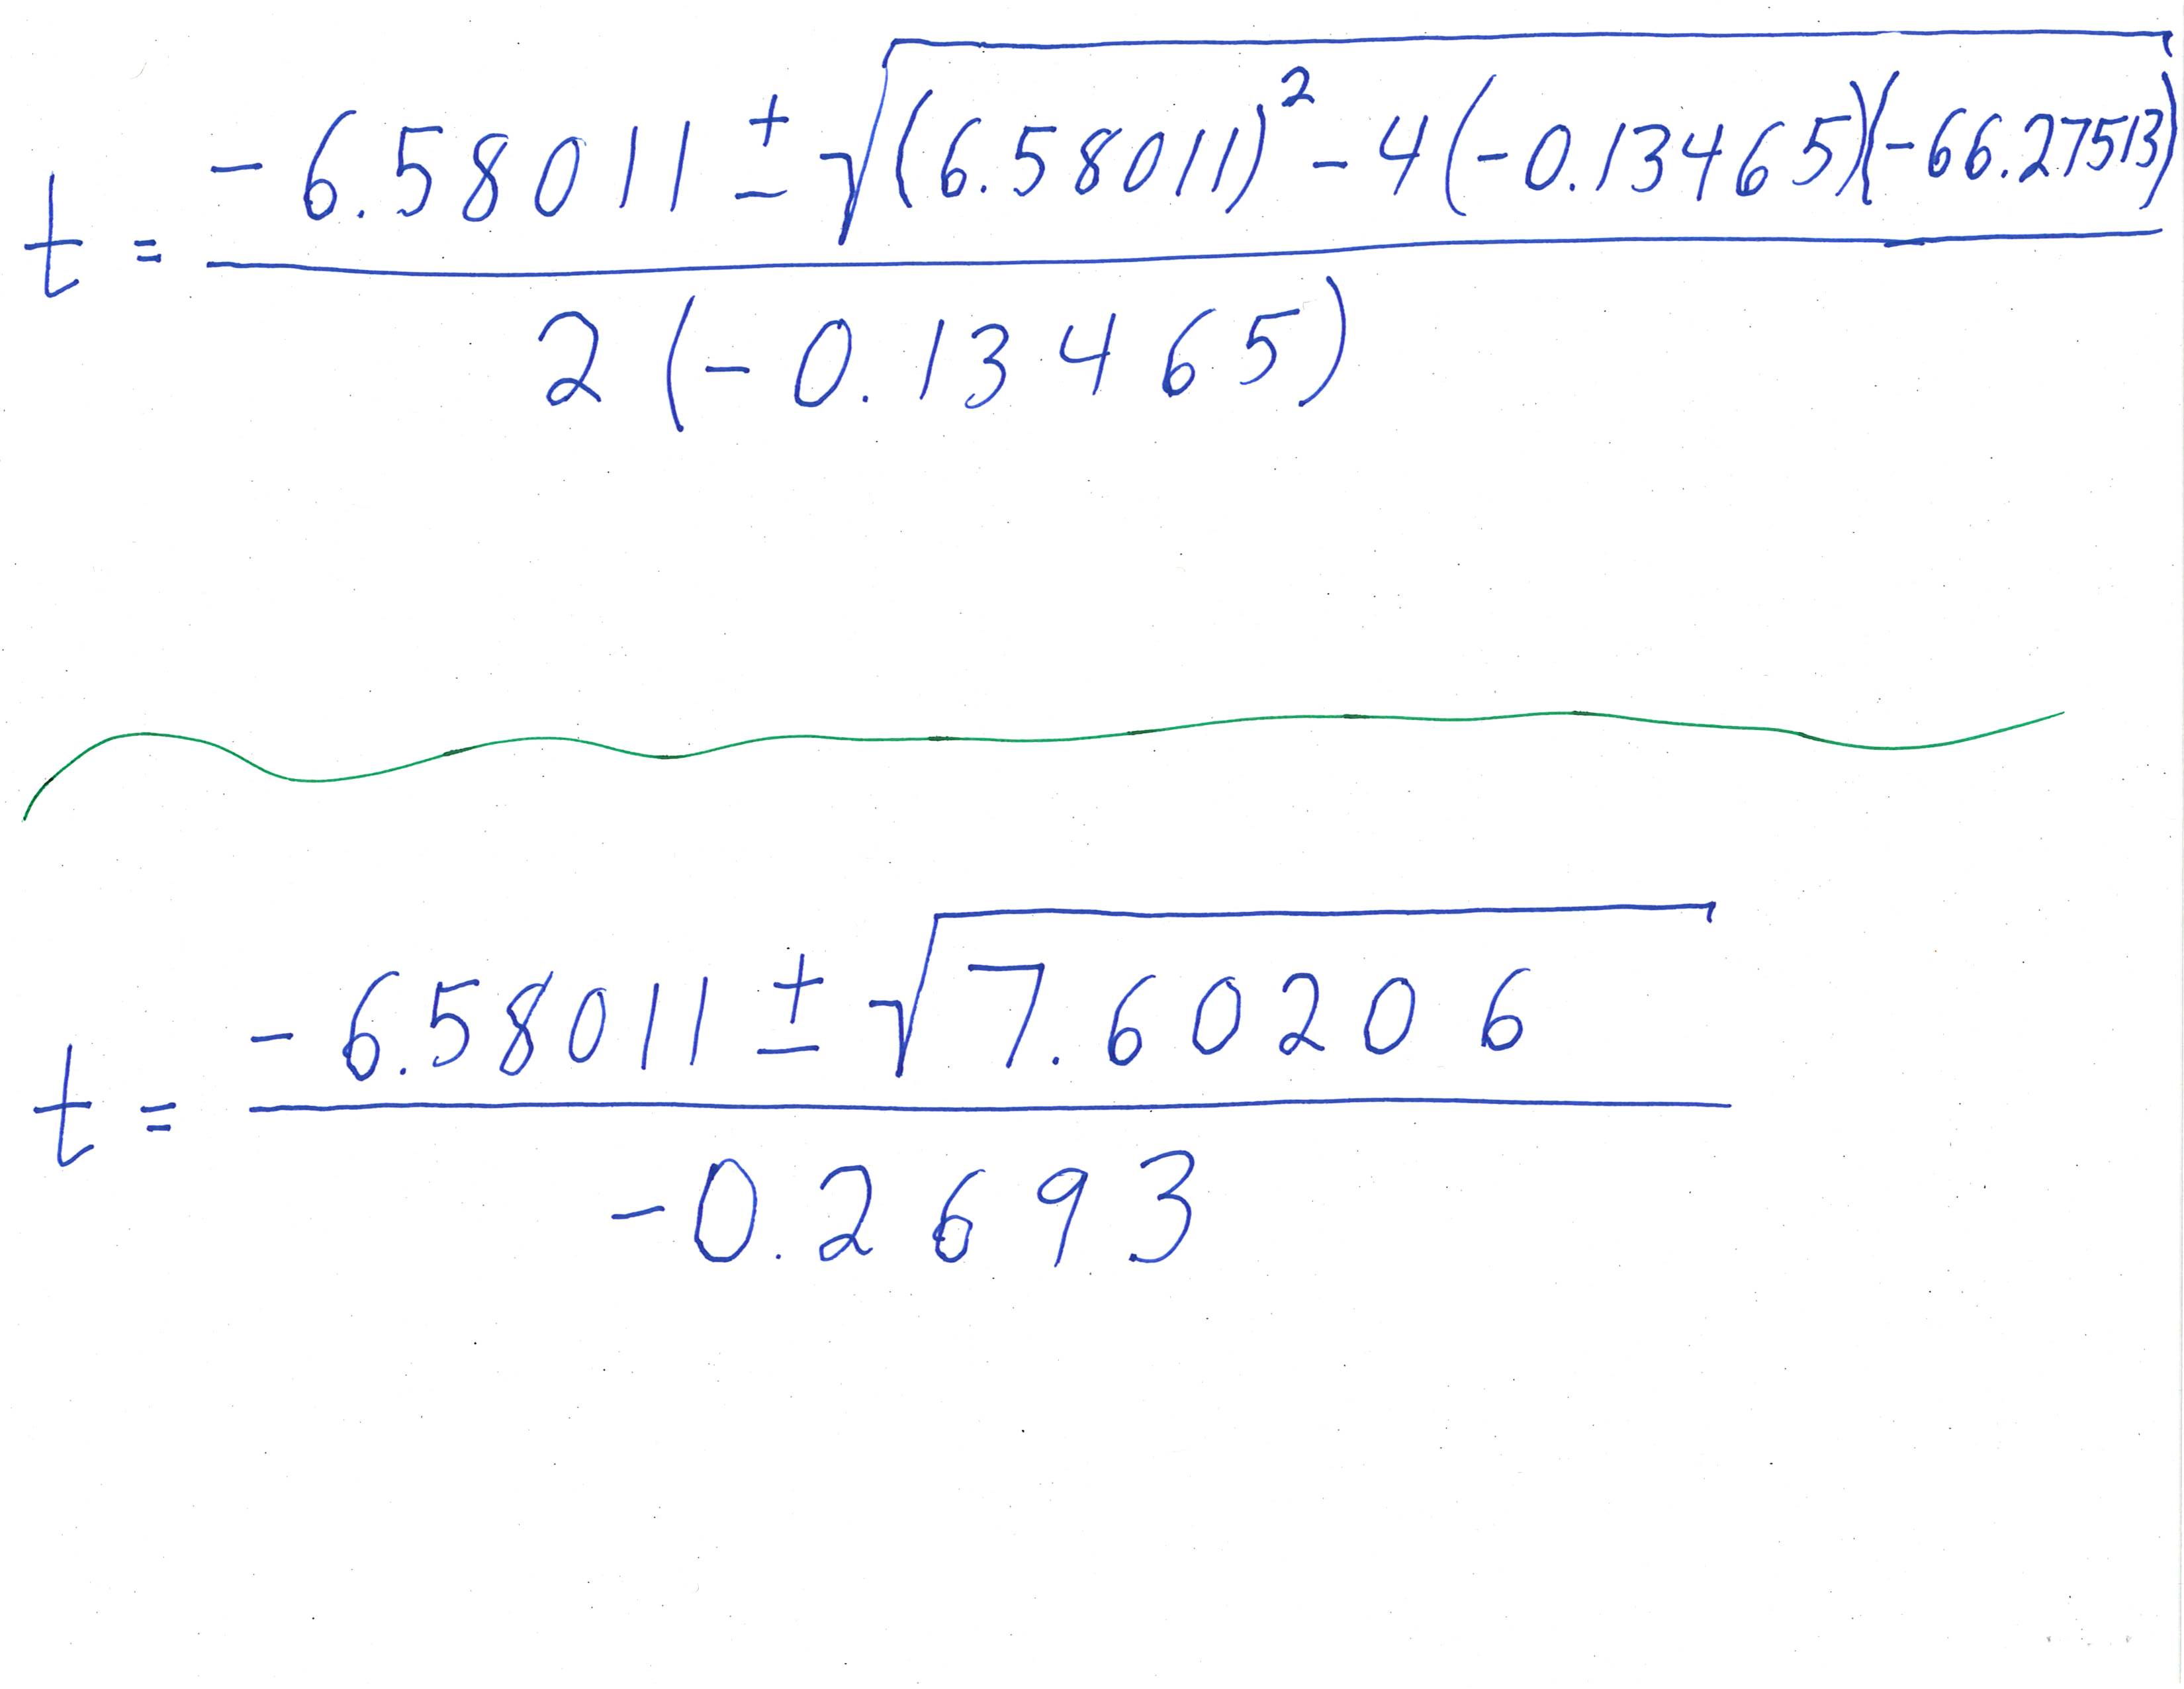 t = -6.58011 ± √((6.58011)² - 4(-0.13465)(-66.27513)) / 2(-0.13465)
t = -6.58011 ± √7.60206 / -0.2693